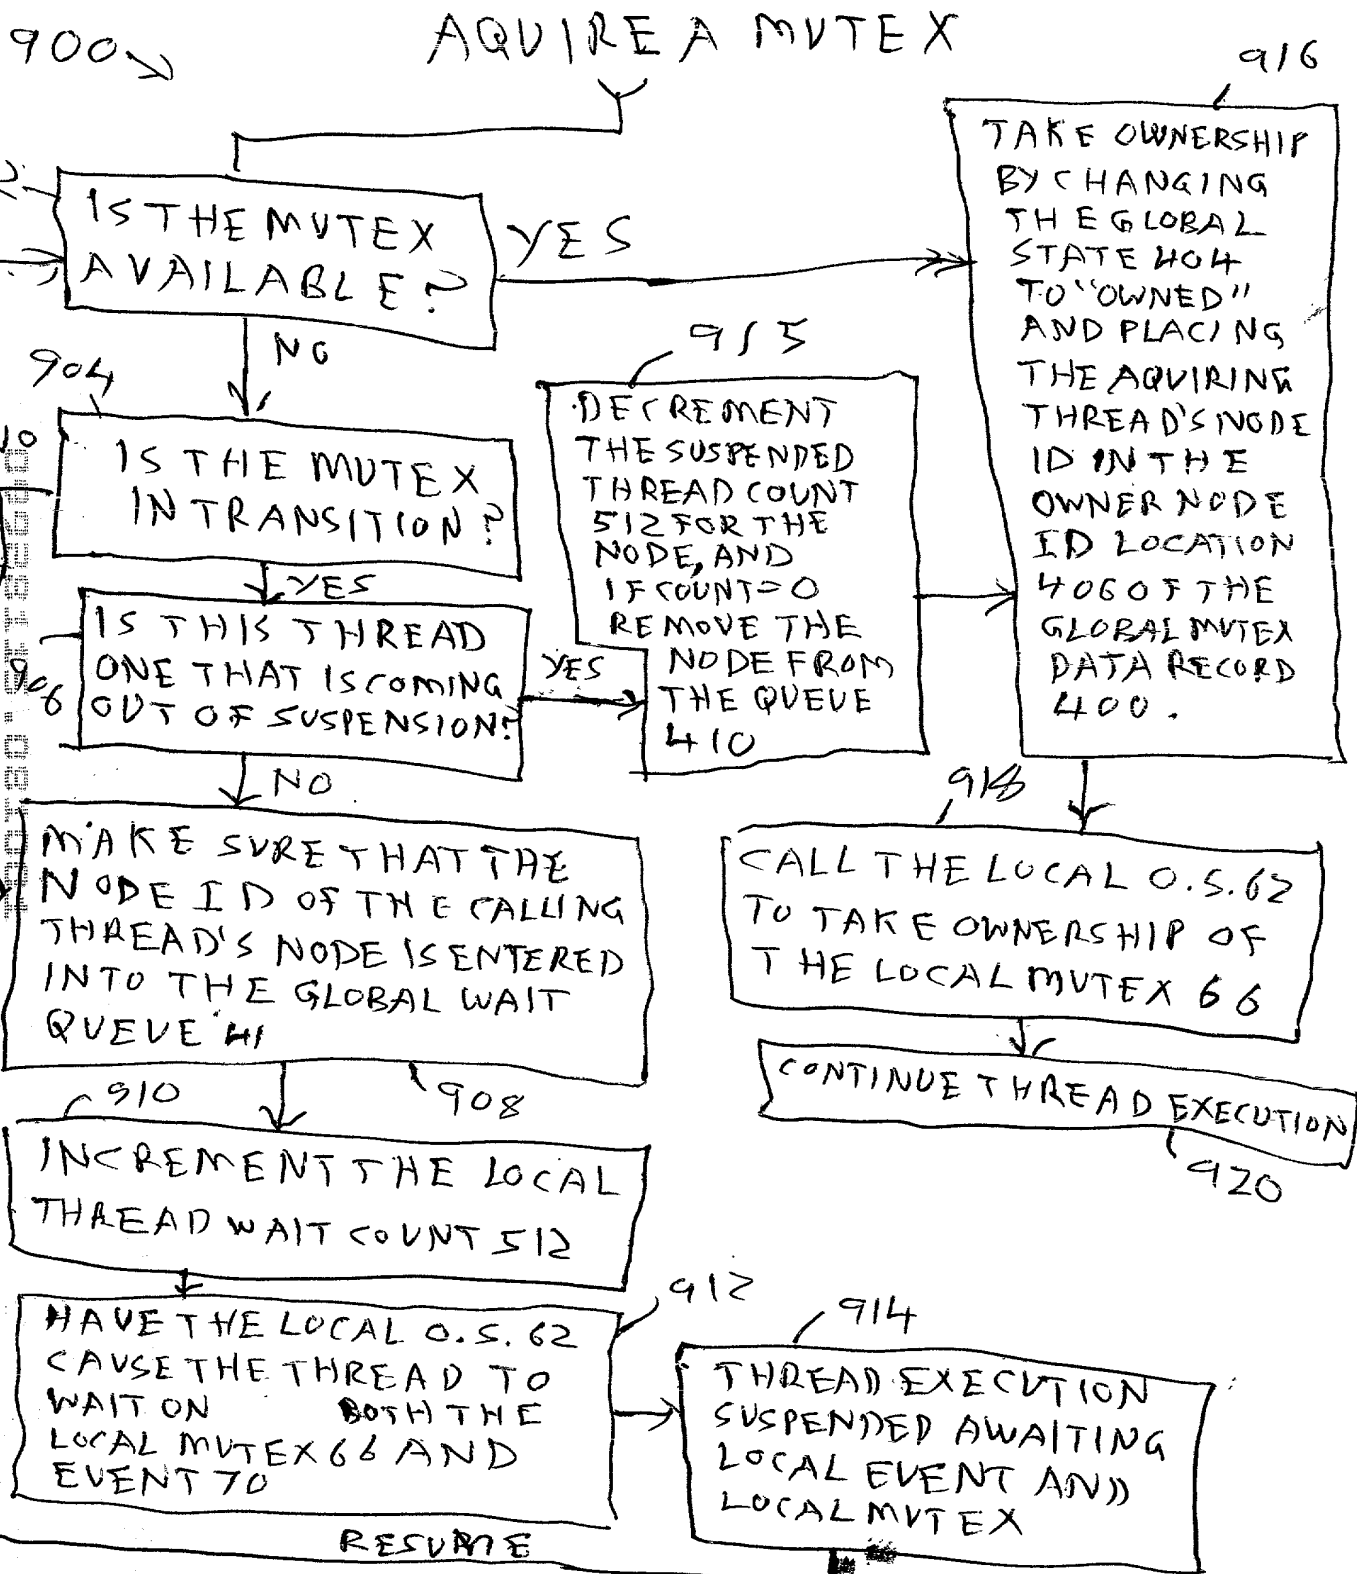 900
AQUIRE A MUTEX
916
IS THE MUTEX
AVAILABLE?
YES
NO
904
IS THE MUTEX
IN TRANSITION?
YES
906
IS THIS THREAD
ONE THAT IS COMING
OUT OF SUSPENSION?
YES
NO
915
DECREMENT
THE SUSPENDED
THREAD COUNT
512 FOR THE
NODE, AND
IF COUNT=0
REMOVE THE
NODE FROM
THE QUEUE
410
TAKE OWNERSHIP
BY CHANGING
THE GLOBAL
STATE 404
TO "OWNED"
AND PLACING
THE AQUIRING
THREAD'S NODE
ID IN THE
OWNER NODE
ID LOCATION
406 OF THE
GLOBAL MUTEX
DATA RECORD
400.
MAKE SURE THAT THE
NODE ID OF THE CALLING
THREAD'S NODE IS ENTERED
INTO THE GLOBAL WAIT
QUEUE 41
908
918
CALL THE LOCAL O.S. 62
TO TAKE OWNERSHIP OF
THE LOCAL MUTEX 66
CONTINUE THREAD EXECUTION
920
910
INCREMENT THE LOCAL
THREAD WAIT COUNT 512
912
HAVE THE LOCAL O.S. 62
CAUSE THE THREAD TO
WAIT ON BOTH THE
LOCAL MUTEX 66 AND
EVENT 70
914
THREAD EXECUTION
SUSPENDED AWAITING
LOCAL EVENT AND
LOCAL MUTEX
RESUME